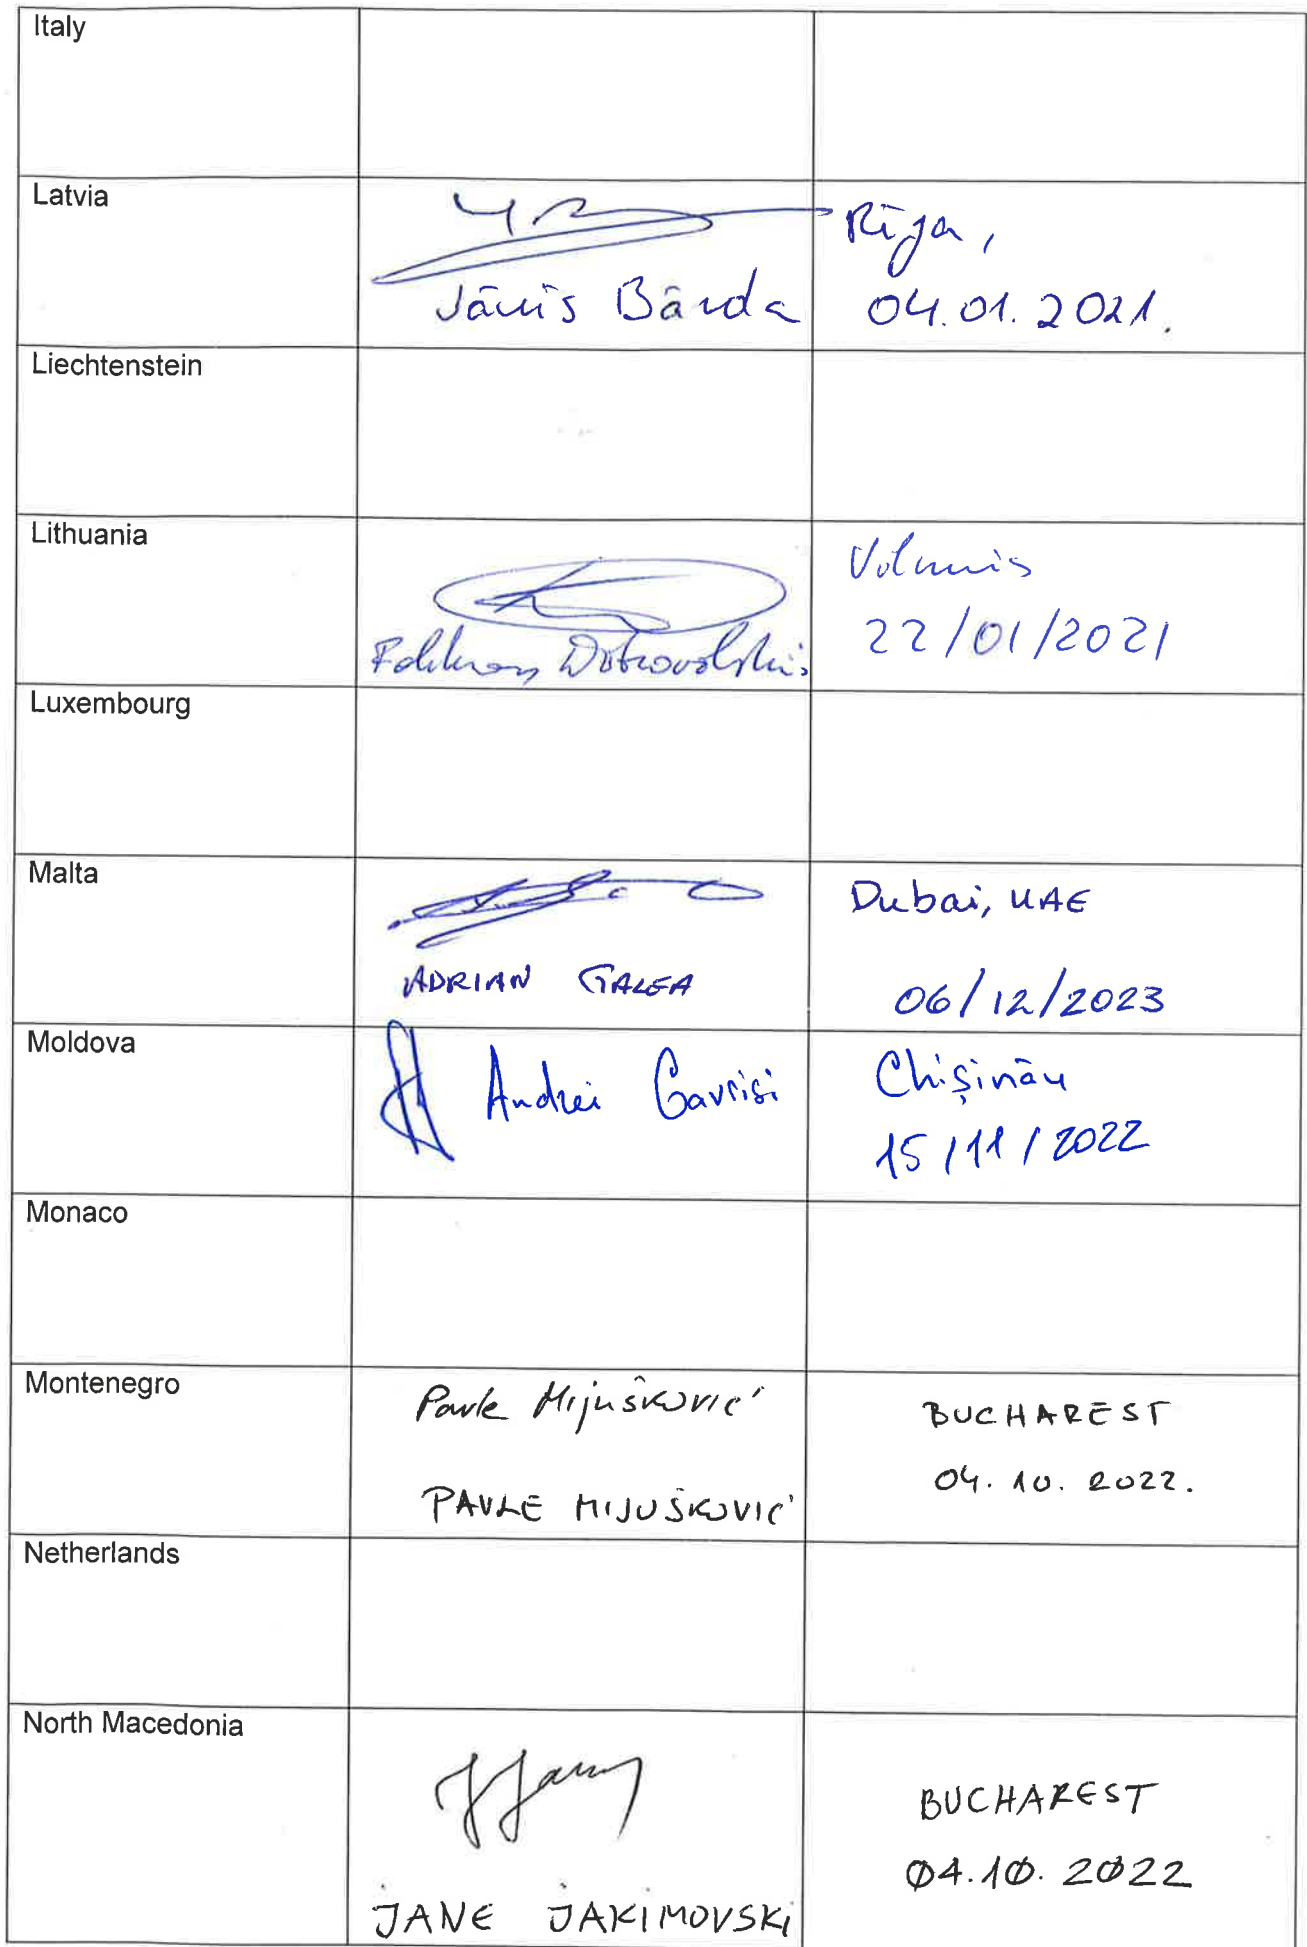 Italy
Latvia
Jānis Bārda
Rīga,
04.01.2021.
Liechtenstein
Lithuania
Dobrovolskis
Vilnius
22/01/2021
Luxembourg
Malta
ADRIAN GALEA
Dubai, UAE
06/12/2023
Moldova
Andrei Gavrisi
Chișinău
15/11/2022
Monaco
Montenegro
Pavle Mijušković
PAVLE MIJUŠKOVIĆ
BUCHAREST
04.10.2022.
Netherlands
North Macedonia
JANE JAKIMOVSKI
BUCHAREST
04.10.2022